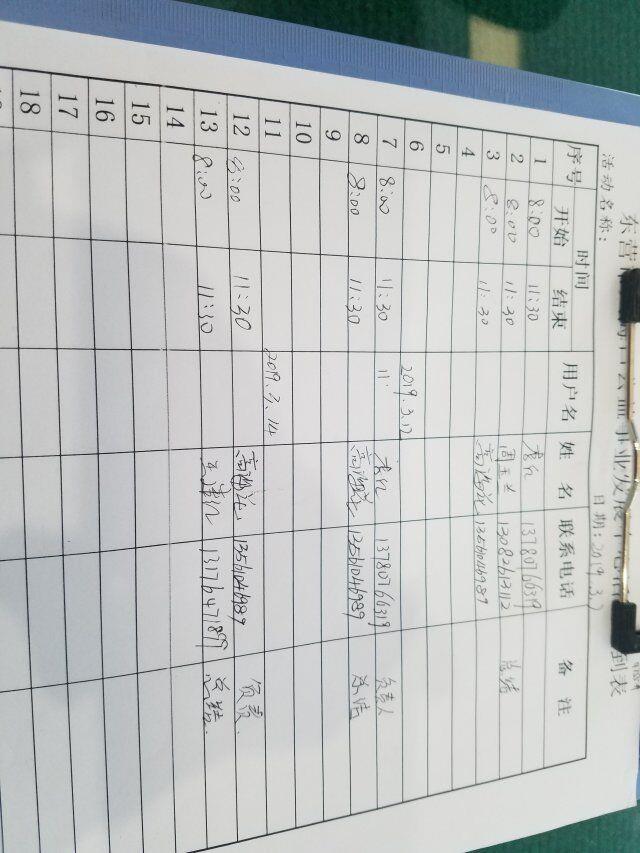 东营
业发展
到表
活动名称：
日期：2019.3.7
序号 时间 用户名 姓名 联系电话 备注
开始 结束
1 8:00 11:30 13780766319
2 8:00 11:30 周玉兰 13082613112 总结
3 8:00 11:30 13561046989
4
5
6 2019.3.12
7 8:00 11:30 11. 13780766319 负责人
8 8:00 11:30 13561046989 总结
9
10
11 2019.3.14
12 8:00 11:30 13561046989 负责
13 8:00 11:30 13176471899 总结
14
15
16
17
18